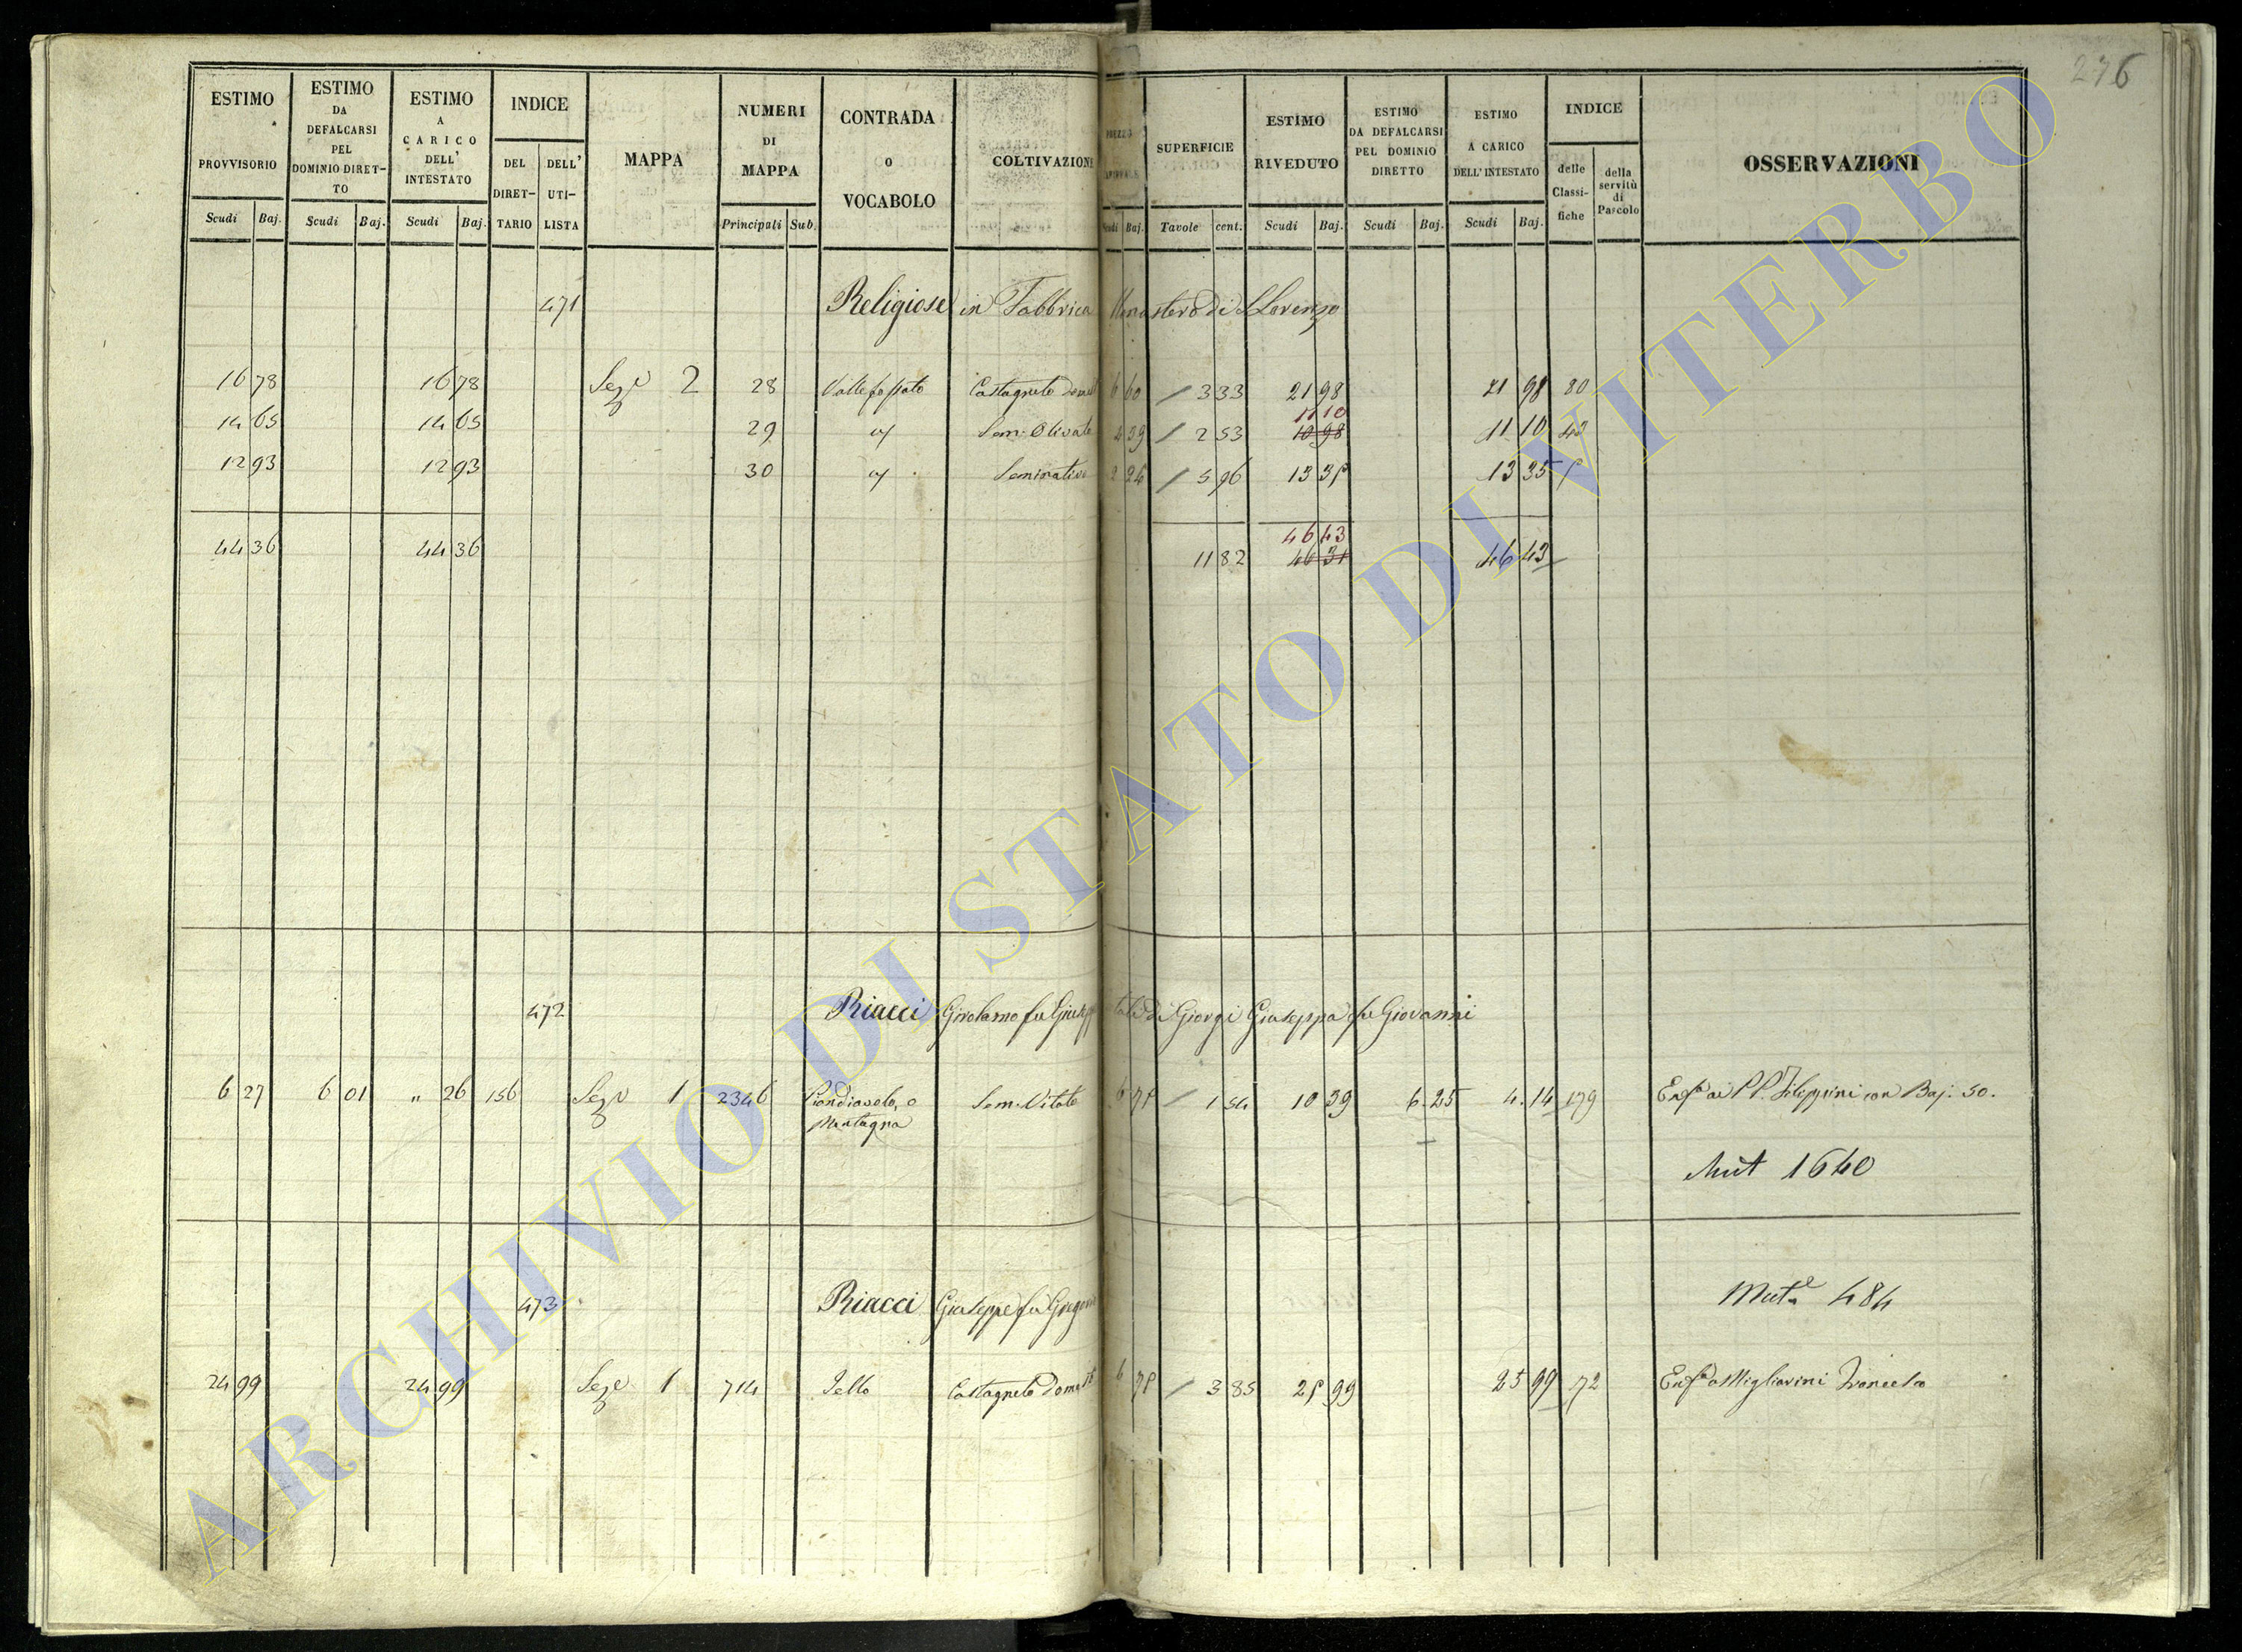 276
ESTIMO PROVVISORIO Scudi Baj.
ESTIMO DA DEFALCARSI PEL DOMINIO DIRET-TO Scudi Baj.
ESTIMO A CARICO DELL' INTESTATO Scudi Baj.
INDICE DEL DIRET-TARIO DELL' UTI-LISTA
MAPPA
NUMERI DI MAPPA Principali Sub.
CONTRADA O VOCABOLO
COLTIVAZIONE
PREZZO Baj.
SUPERFICIE Tavole cent.
ESTIMO RIVEDUTO Scudi Baj.
ESTIMO DA DEFALCARSI PEL DOMINIO DIRETTO Scudi Baj.
ESTIMO A CARICO DELL' INTESTATO Scudi Baj.
INDICE delle Classi-fiche della servitù di Pascolo
OSSERVAZIONI
471 Religiose in Fabbrica Monastero di S Lorenzo
16 78 16 78 Seze 2 28 Vallefossato Castagneto Domest 6 60 / 3 33 21 98 21 98 80
11 10
14 65 14 65 29 Sem: Olivato 4 39 / 2 53 10 98 11 10 43
12 93 12 93 30 Seminativo 2 24 / 5 96 13 35 13 35
46 43
44 36 44 36 11 82 46 31 46 43
472 Riacci Girolamo fu Giuseppe di Giorgi Giuseppa fu Giovanni
6 27 6 01 " 26 156 Seze 1 2346 o Montagna Sem: Vitato 6 75 / 1 54 10 39 6. 25 4. 14 179 Enfa ai PP. Filippini con Baj: 50.
Mut 1640
473 Riacci Giuseppe fu Gregorio Muta 484
24 99 24 99 Seze 1 714 Sello Castagneto Domest 6 75 / 3 85 25 99 25 99 72 Enfa a Migliorini Francesco
ARCHIVIO DI STATO DI VITERBO